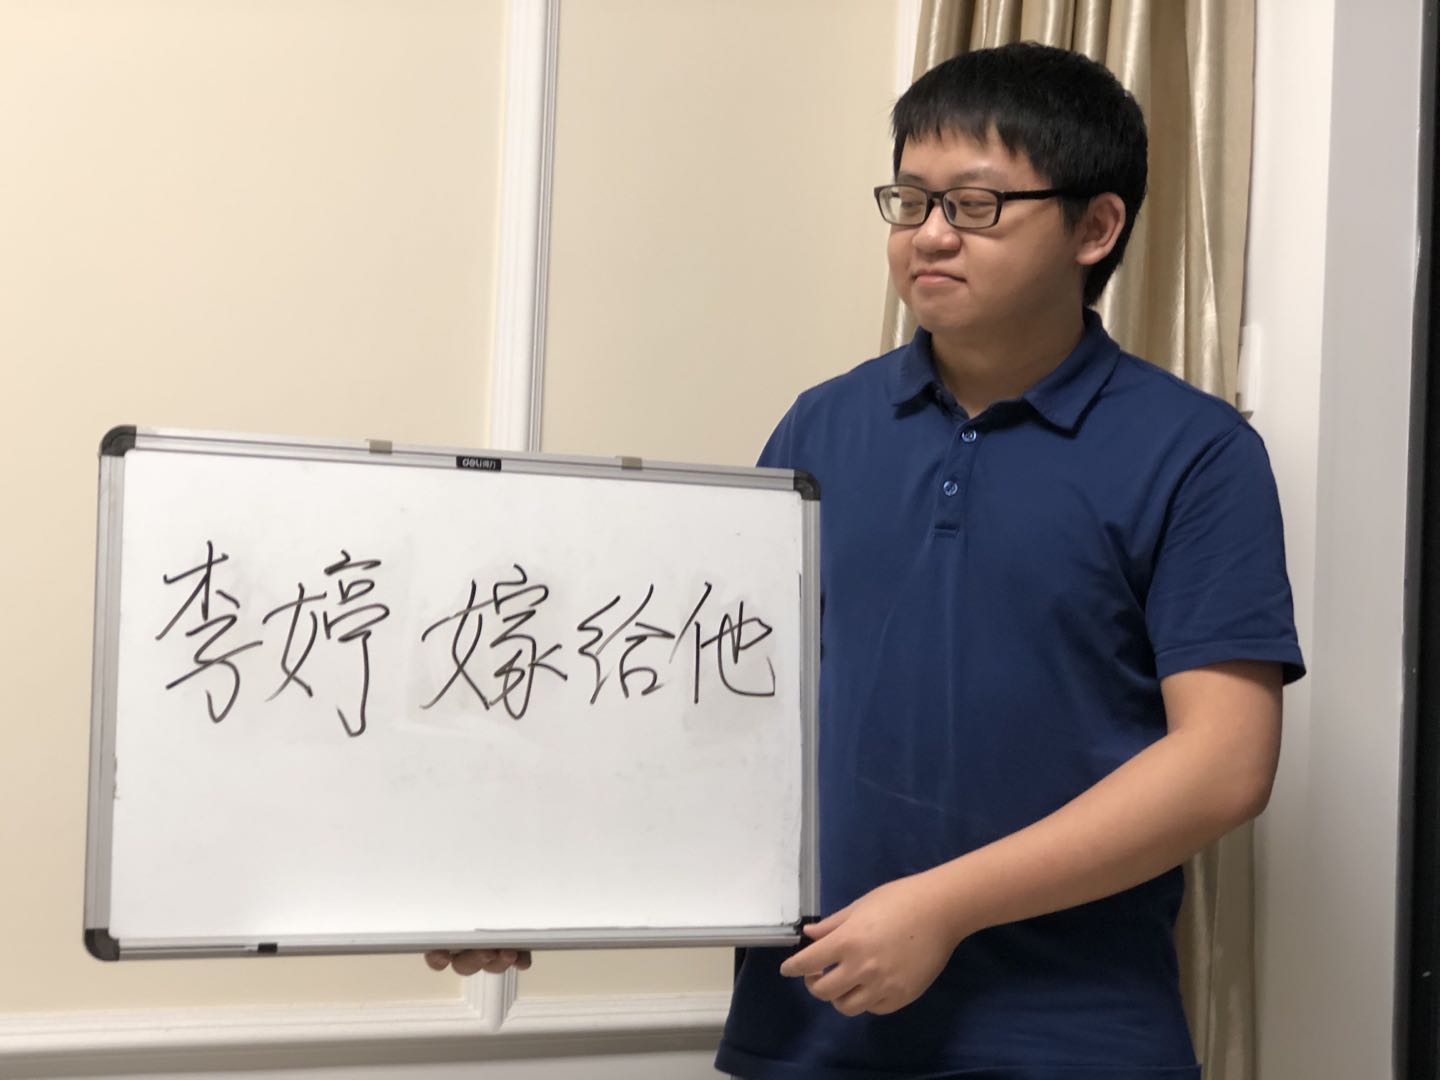 deli得力
李婷 嫁给他